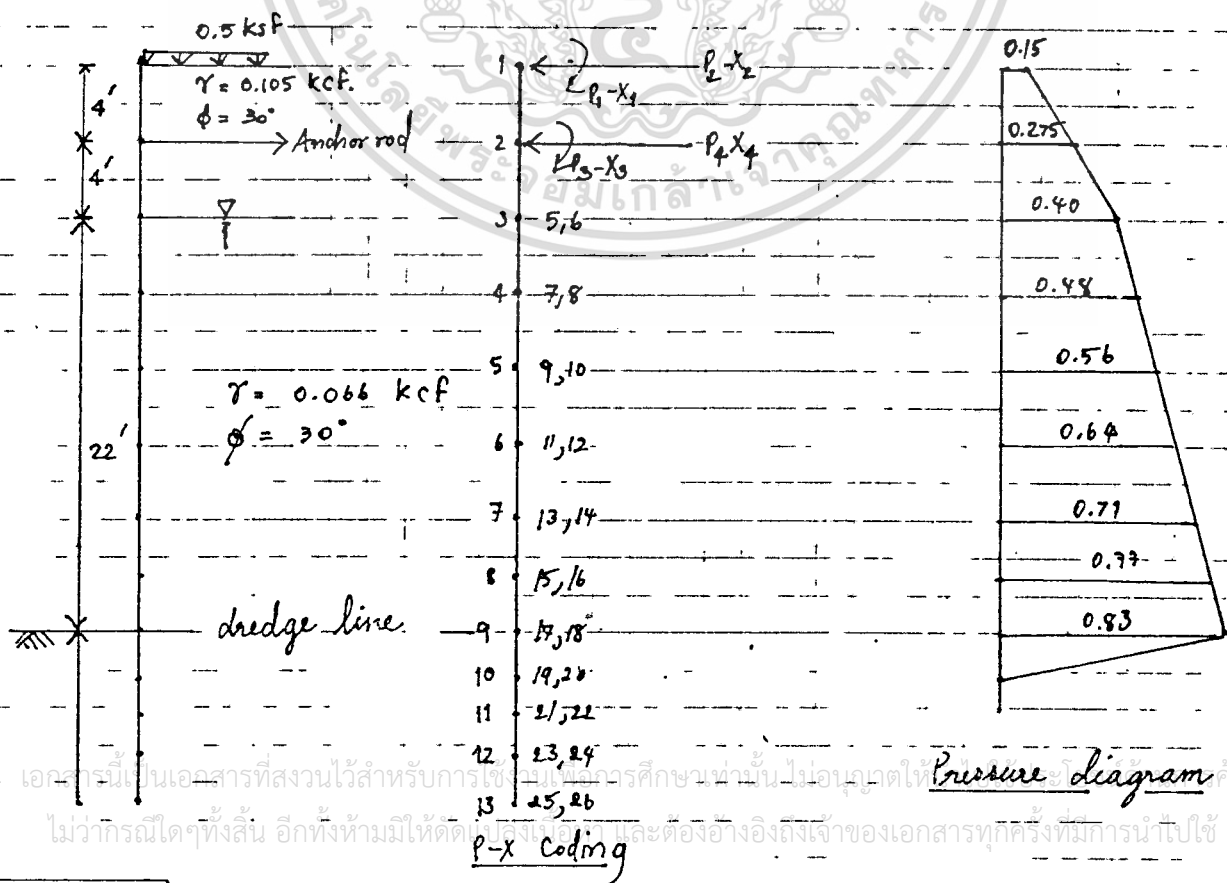 0.5 ksf
γ = 0.105 kcf.
φ = 30°
4'
Anchor rod
4'
22'
γ = 0.066 kcf
φ = 30°
dredge line
1
P2-X2
P1-X1
2
P4 X4
P3-X3
3 5,6
4 7,8
5 9,10
6 11,12
7 13,14
8 15,16
9 17,18
10 19,20
11 21,22
12 23,24
13 25,26
P-X Coding
0.15
0.275
0.40
0.48
0.56
0.64
0.71
0.77
0.83
Pressure diagram
เอกสารนี้เป็นเอกสารที่สงวนไว้สำหรับการใช้งานเพื่อการศึกษาเท่านั้น ไม่อนุญาตให้
ไม่ว่ากรณีใดๆทั้งสิ้น อีกทั้งห้ามมิให้ดัดแปลงเนื้อหา และต้องอ้างอิงถึงเจ้าของเอกสารทุกครั้งที่มีการนำไปใช้